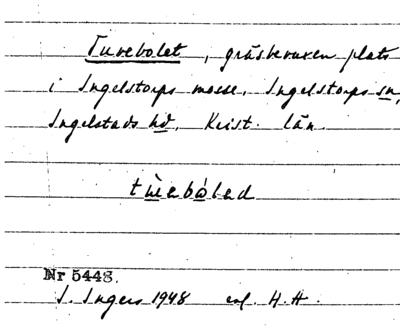 Tuvebolet, gräsbevuxen plats
i Ingelstorps mosse. Ingelstorps sn,
Ingelstads hd, Krist. län.
tùebålad
Nr 5448.
I. Ingers 1948 exc. H.H.